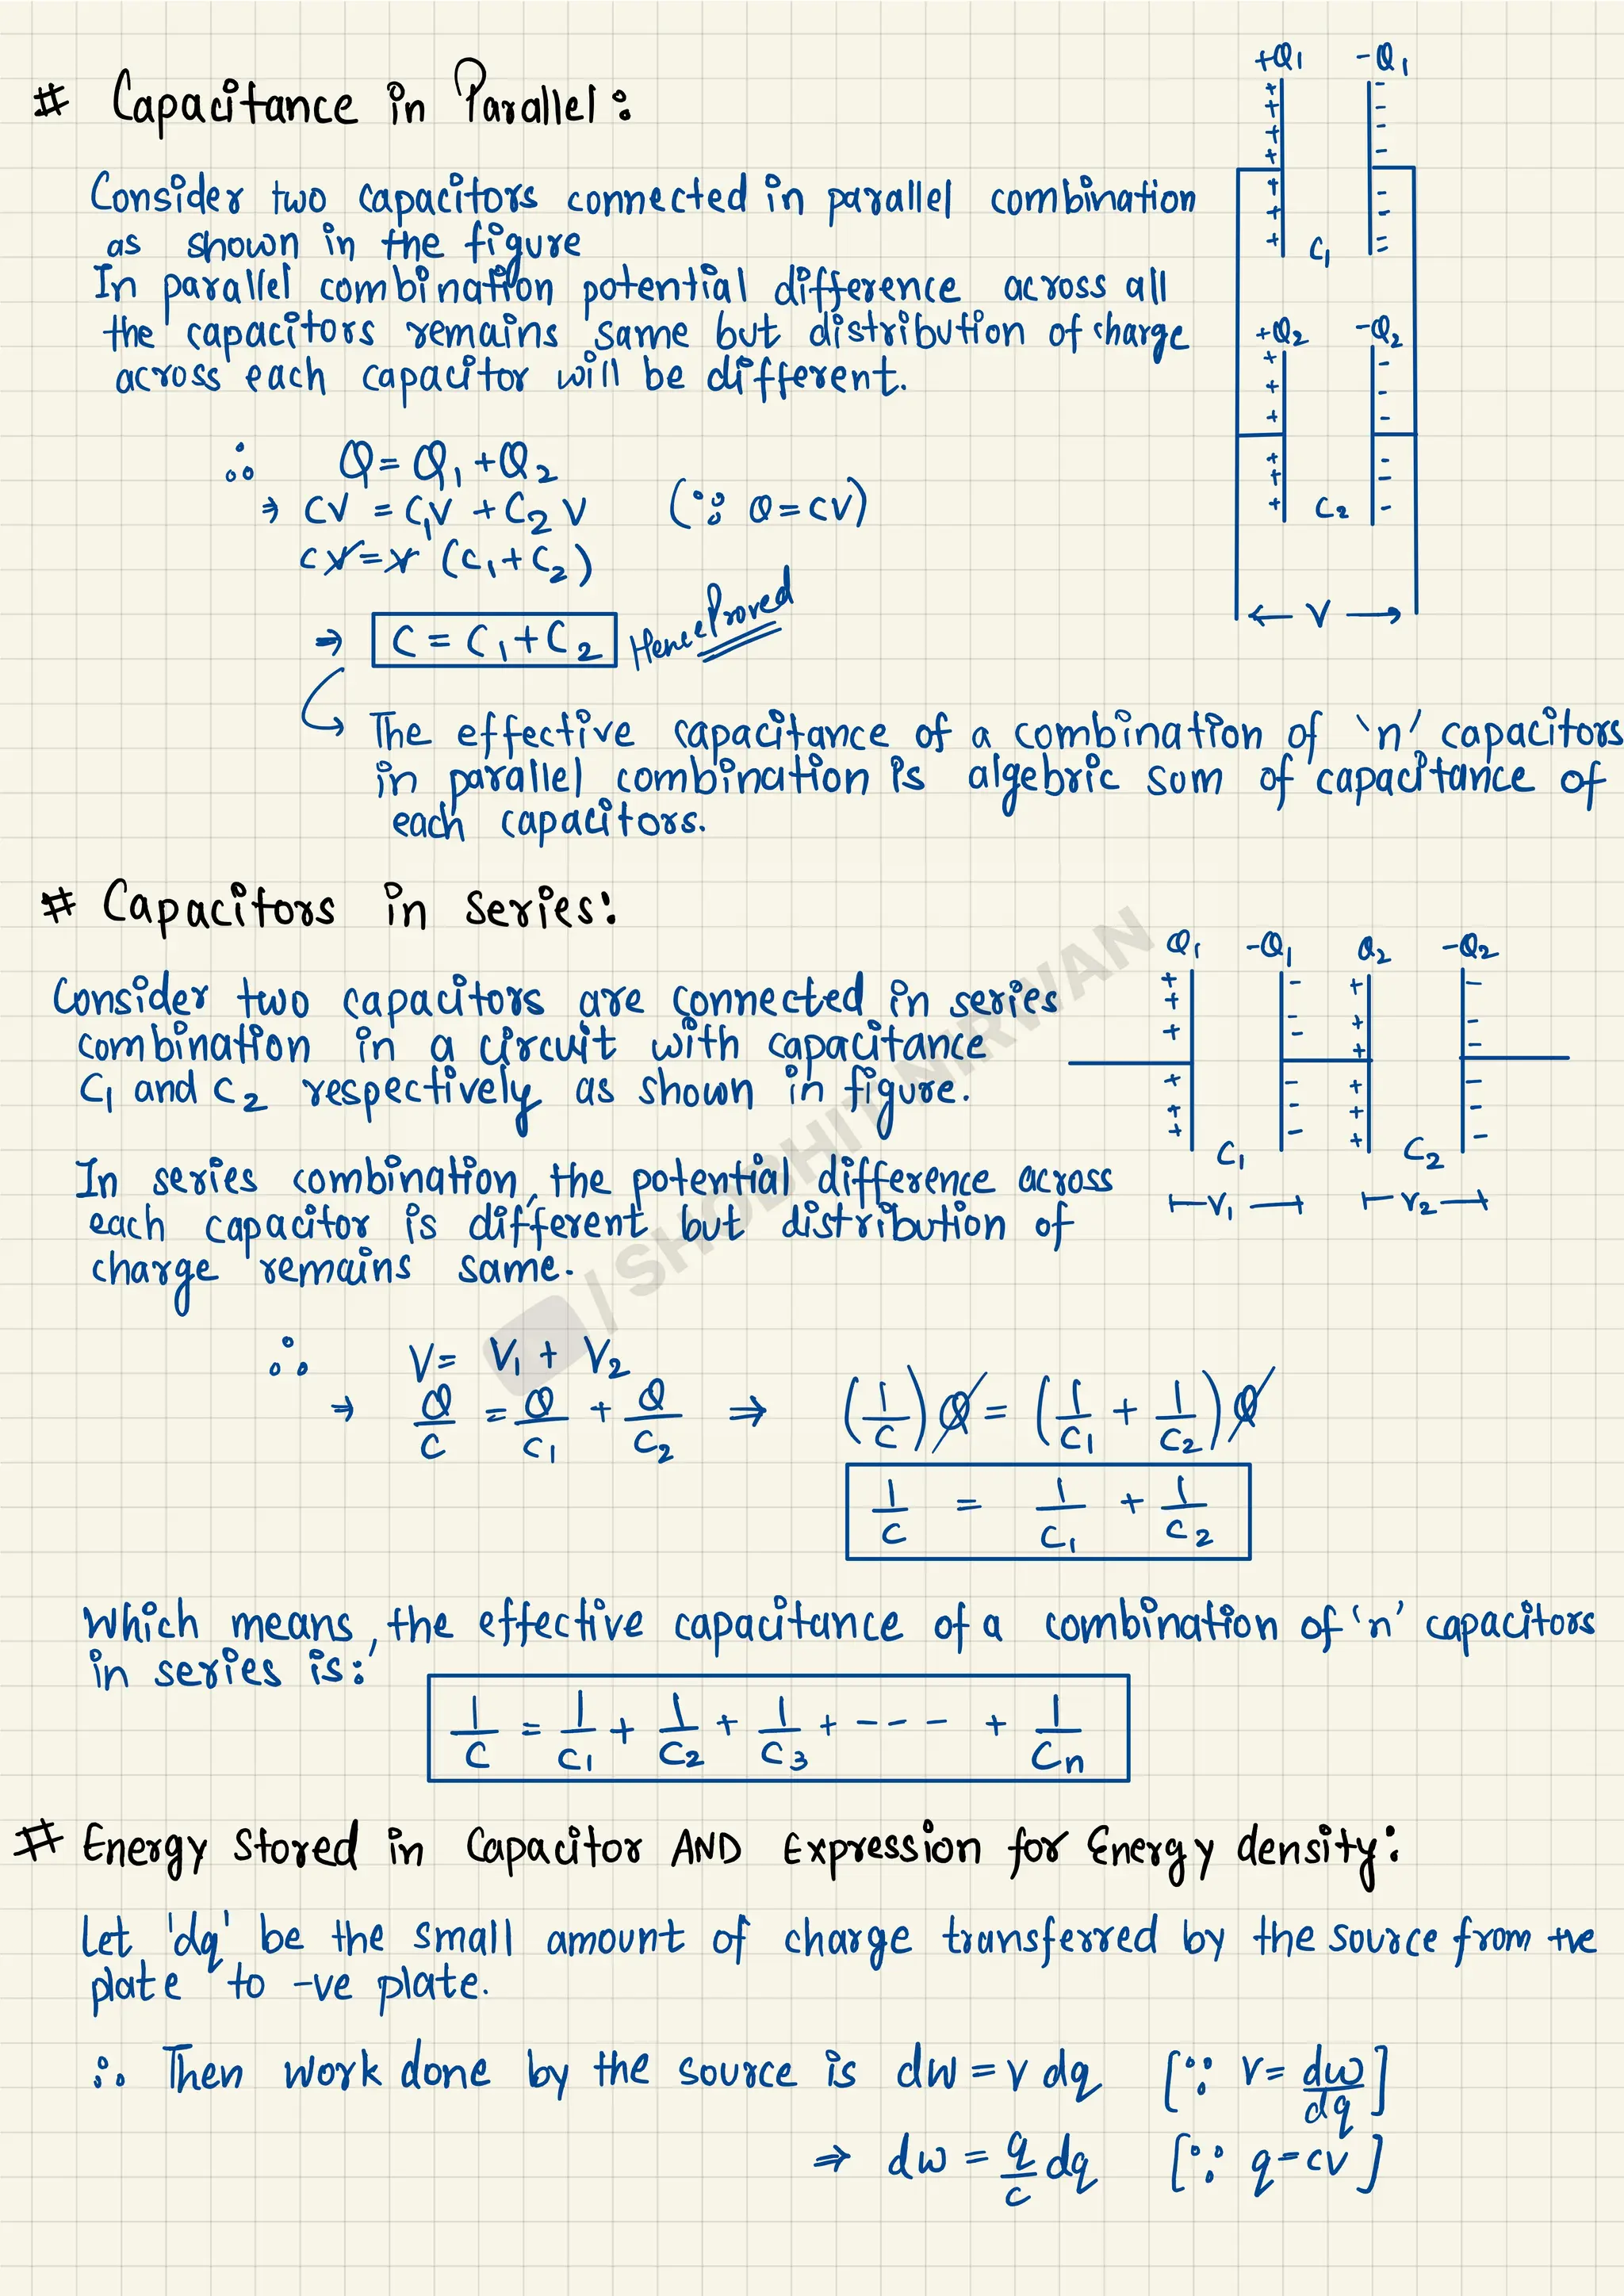 # Capacitance in Parallel:
+Q1 -Q1
Consider two capacitors connected in parallel combination
as shown in the figure
C1
In parallel combination potential difference across all
the capacitors remains same but distribution of charge
+Q2 -Q2
across each capacitor will be different.
∴ Q = Q1 + Q2
⇒ CV = C1V + C2V (∵ Q = CV)
C2
CV = V (C1 + C2)
⇒ C = C1 + C2 Hence Proved
← V →
The effective capacitance of a combination of 'n' capacitors
in parallel combination is algebric sum of capacitance of
each capacitors.
# Capacitors in series:
Q1 -Q1 Q2 -Q2
Consider two capacitors are connected in series
combination in a circuit with capacitance
C1 and C2 respectively as shown in figure.
C1 C2
In series combination, the potential difference across
V1 V2
each capacitor is different but distribution of
charge remains same.
/SHOBHIT NIRWAN
∴ V = V1 + V2
⇒ Q/C = Q/C1 + Q/C2 ⇒ (1/C) Q = (1/C1 + 1/C2) Q
1/C = 1/C1 + 1/C2
Which means, the effective capacitance of a combination of 'n' capacitors
in series is:
1/C = 1/C1 + 1/C2 + 1/C3 + ---- + 1/Cn
# Energy stored in Capacitor AND Expression for Energy density:
Let 'dq' be the small amount of charge transferred by the source from +ve
plate to -ve plate.
∴ Then work done by the source is dw = v dq [∵ V = dw/dq]
⇒ dw = q/c dq [∵ q = cv]